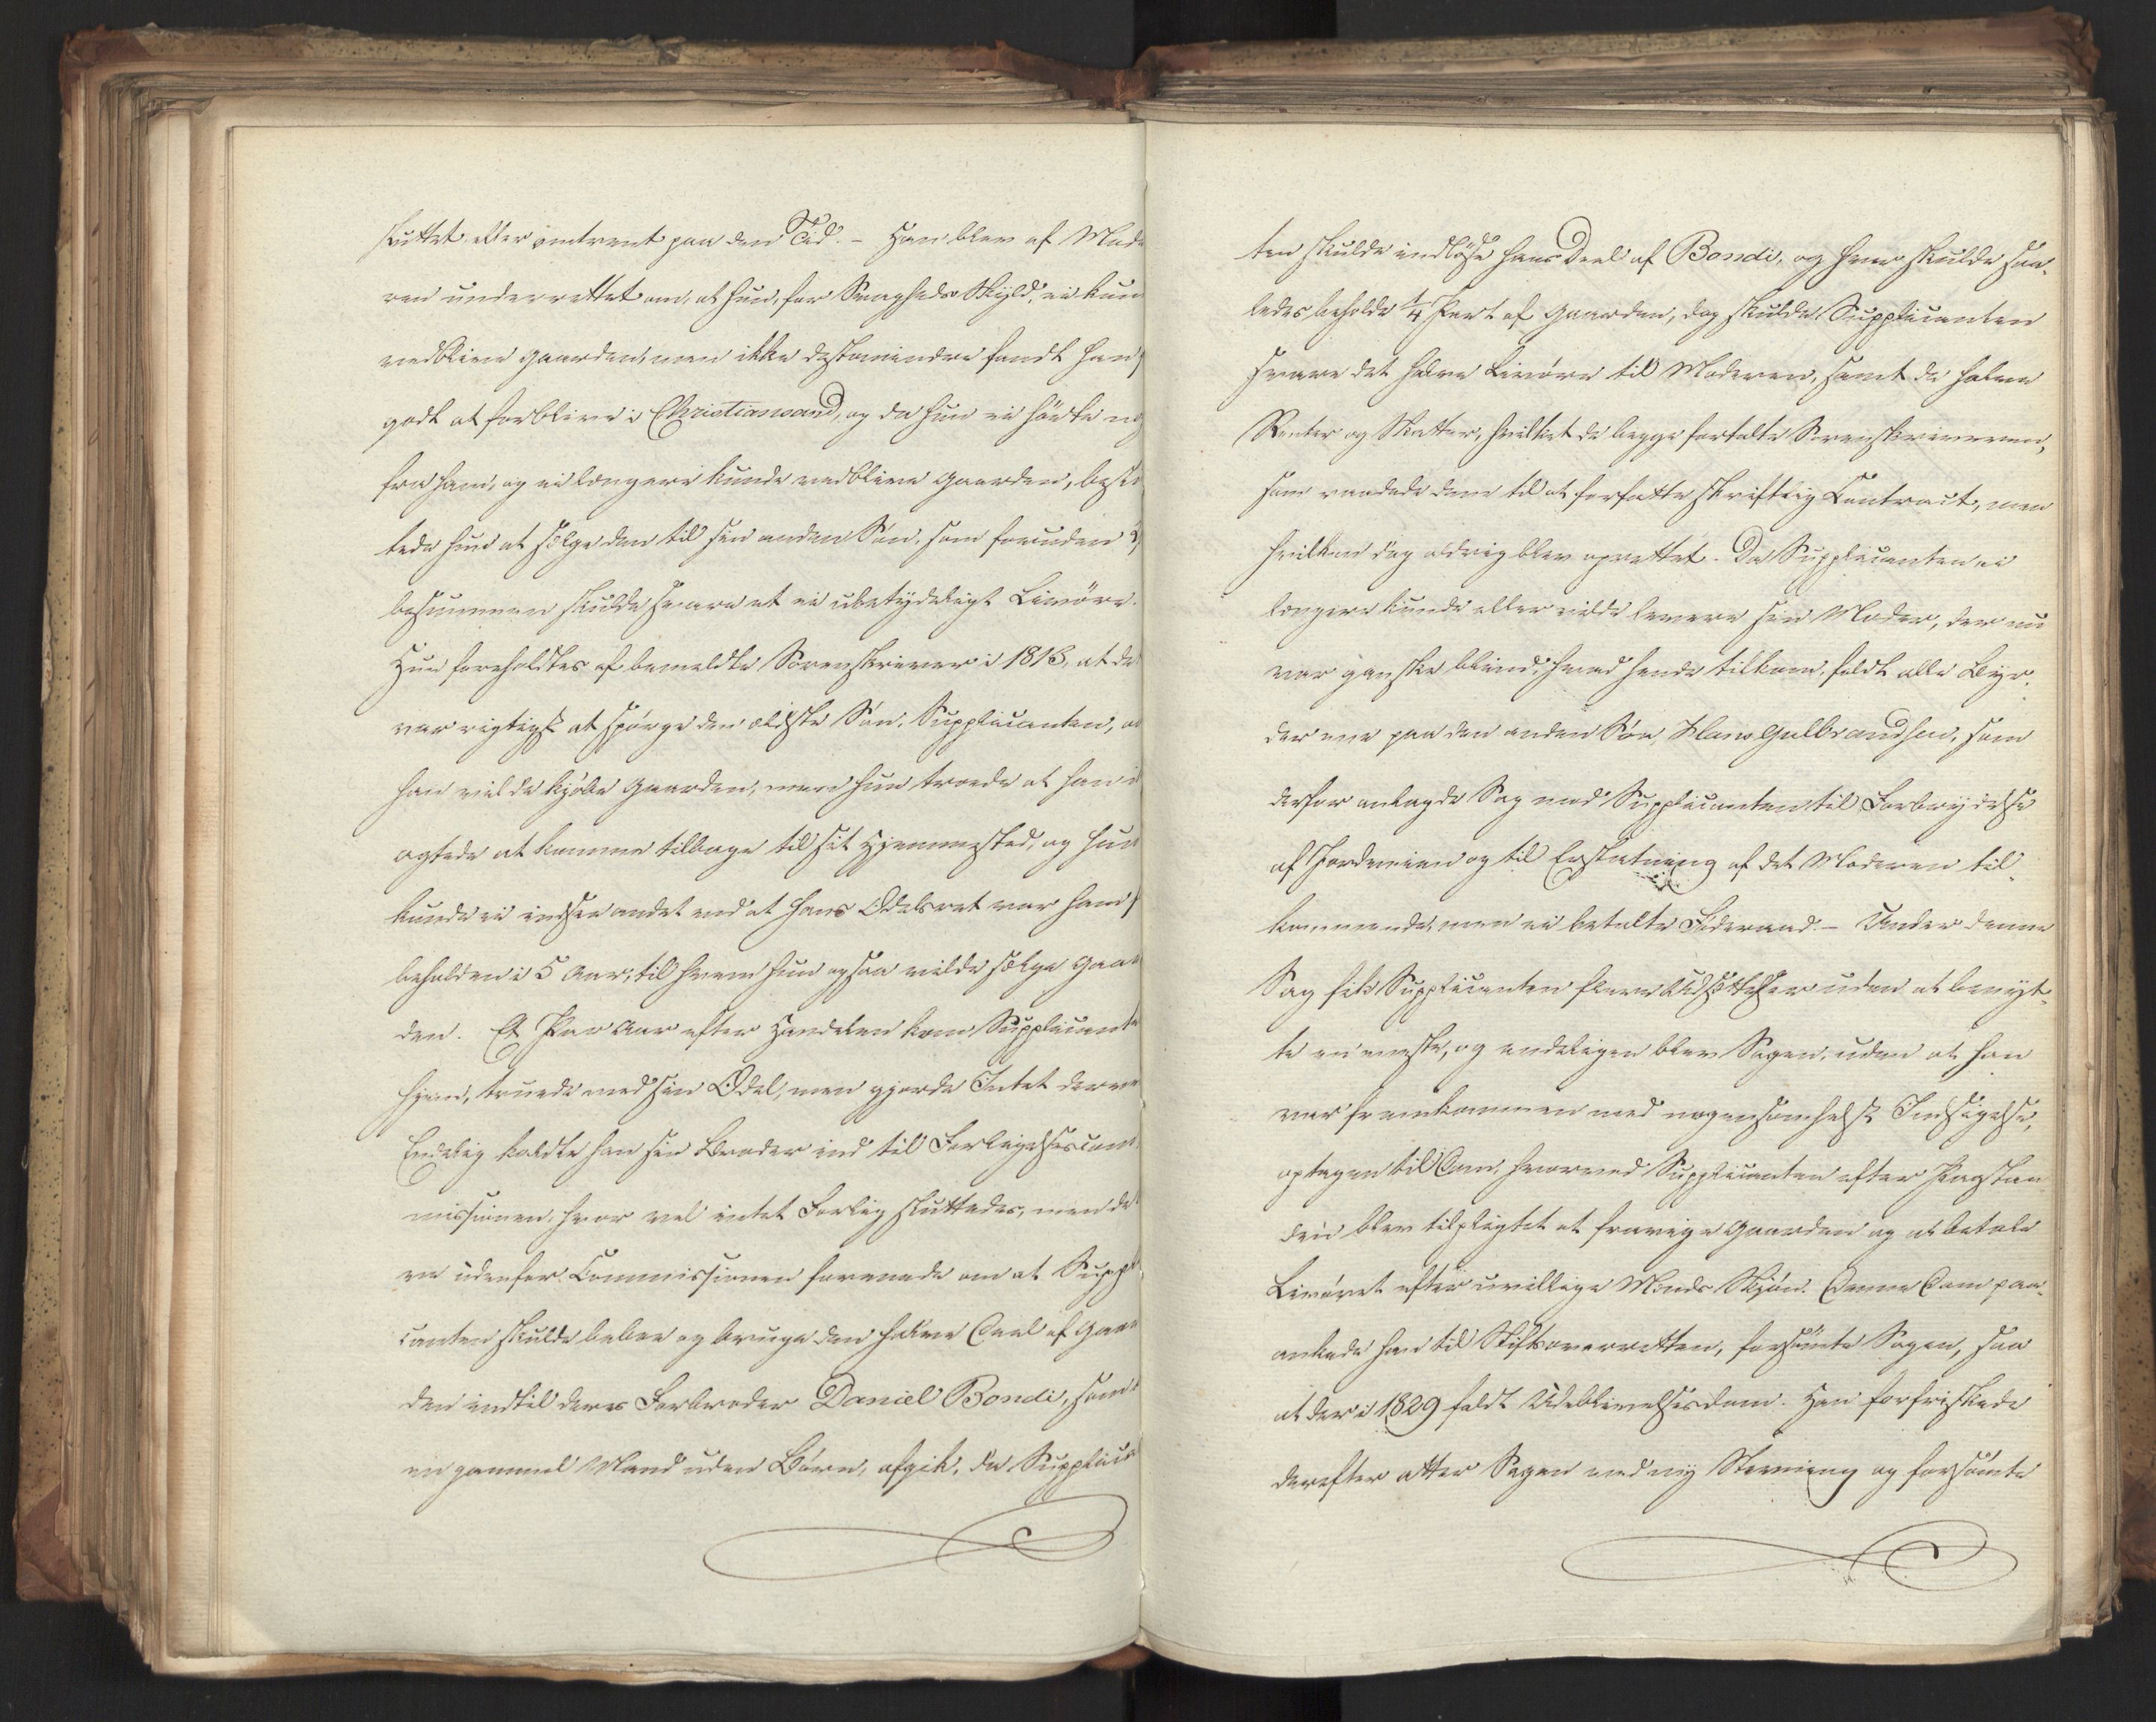 sluttet eller omtrent paa den Tid. – Han blev af Mode
ren underrettet om, at hun, for Svagheds Skyld, ei kun
vedblive Gaarden, men ikke destomindre fandt han
godt at forblive i Christiansand, og da hun ei hörte no
fra ham, og ei længere kunde vedblive Gaarden, beslut
tede hun at sælge den til sin anden Sön, som foruden Kj
besummen skulde svare et ei ubetydeligt Livöre.
Hun foreholdtes af bemeldte Sorenskriver i 1816, at de
var rigtigst at spörge den ældste Sön, Supplicanten, o
han vilde kjöbe Gaarden, men hun troede at han i
agtede at komme tilbage til sit Hjemmested, og hun
kunde ei indsee andet end at hans Odelsret var ham
beholden i 5 Aar, til hvem hun ogsaa vilde sælge Gaar
den. Et Par Aar efter Handelen kom Supplicante
hjem, truede med sin Odel, men gjorde Intet derved
Endelig kaldte han sin Broder ind til Forligelsescom
missionen, hvor vel intet Forlig sluttedes, men de
ene udenfor Commissionen forenede om at Suppli
canten skulde beboe og bruge den halve Deel af Gaar
den indtil deres Farbroder Daniel Bondi, som
en gammel Mand uden Börn, afgik, da Supplican
ten skulde indlöse hans Deel af Bondi, og hver skulde saa-
ledes beholde 1/4 Part af Gaarden, dog skulde Supplicanten
svare det halve Livöre til Moderen, samt de halve
Renter og Skatter, hvilket de begge fortalte Sorenskriveren,
som raadede dem til at forfatte skriftlig Contract, men
hvilken dog aldrig blev oprettet. Da Supplicanten ei
længere kunde eller vilde levere sin Moder, der nu
var ganske blind, hvad hende tilkom, faldt alle Byr-
der ene paa den anden Sön, Hans Gulbrandsen, som
derfor anlagde Sag mod Supplicanten til Forbrydelse
af Jordveien og til Erstatning af det Moderen til-
kommende, men ei betalte Föderaad. – Under denne
Sag fik Supplicanten flere Udsættelser uden at benyt-
te en eneste, og endeligen blev Sagen, uden at han
var fremkommen med nogensomhelst Indsigelse,
optagen til Dom, hvorved Supplicanten efter Paastan
den blev tilpligtet at fravige Gaarden og at betale
Livöret efter uvillige Mænds Skjön. Denne Dom paa-
ankede han til Stiftsoverretten, forsömte Sagen, saa
at der i 1829 faldt Udeblivelsesdom. Han forfriskede
derefter atter Sagen med ny Stevning og forsömte